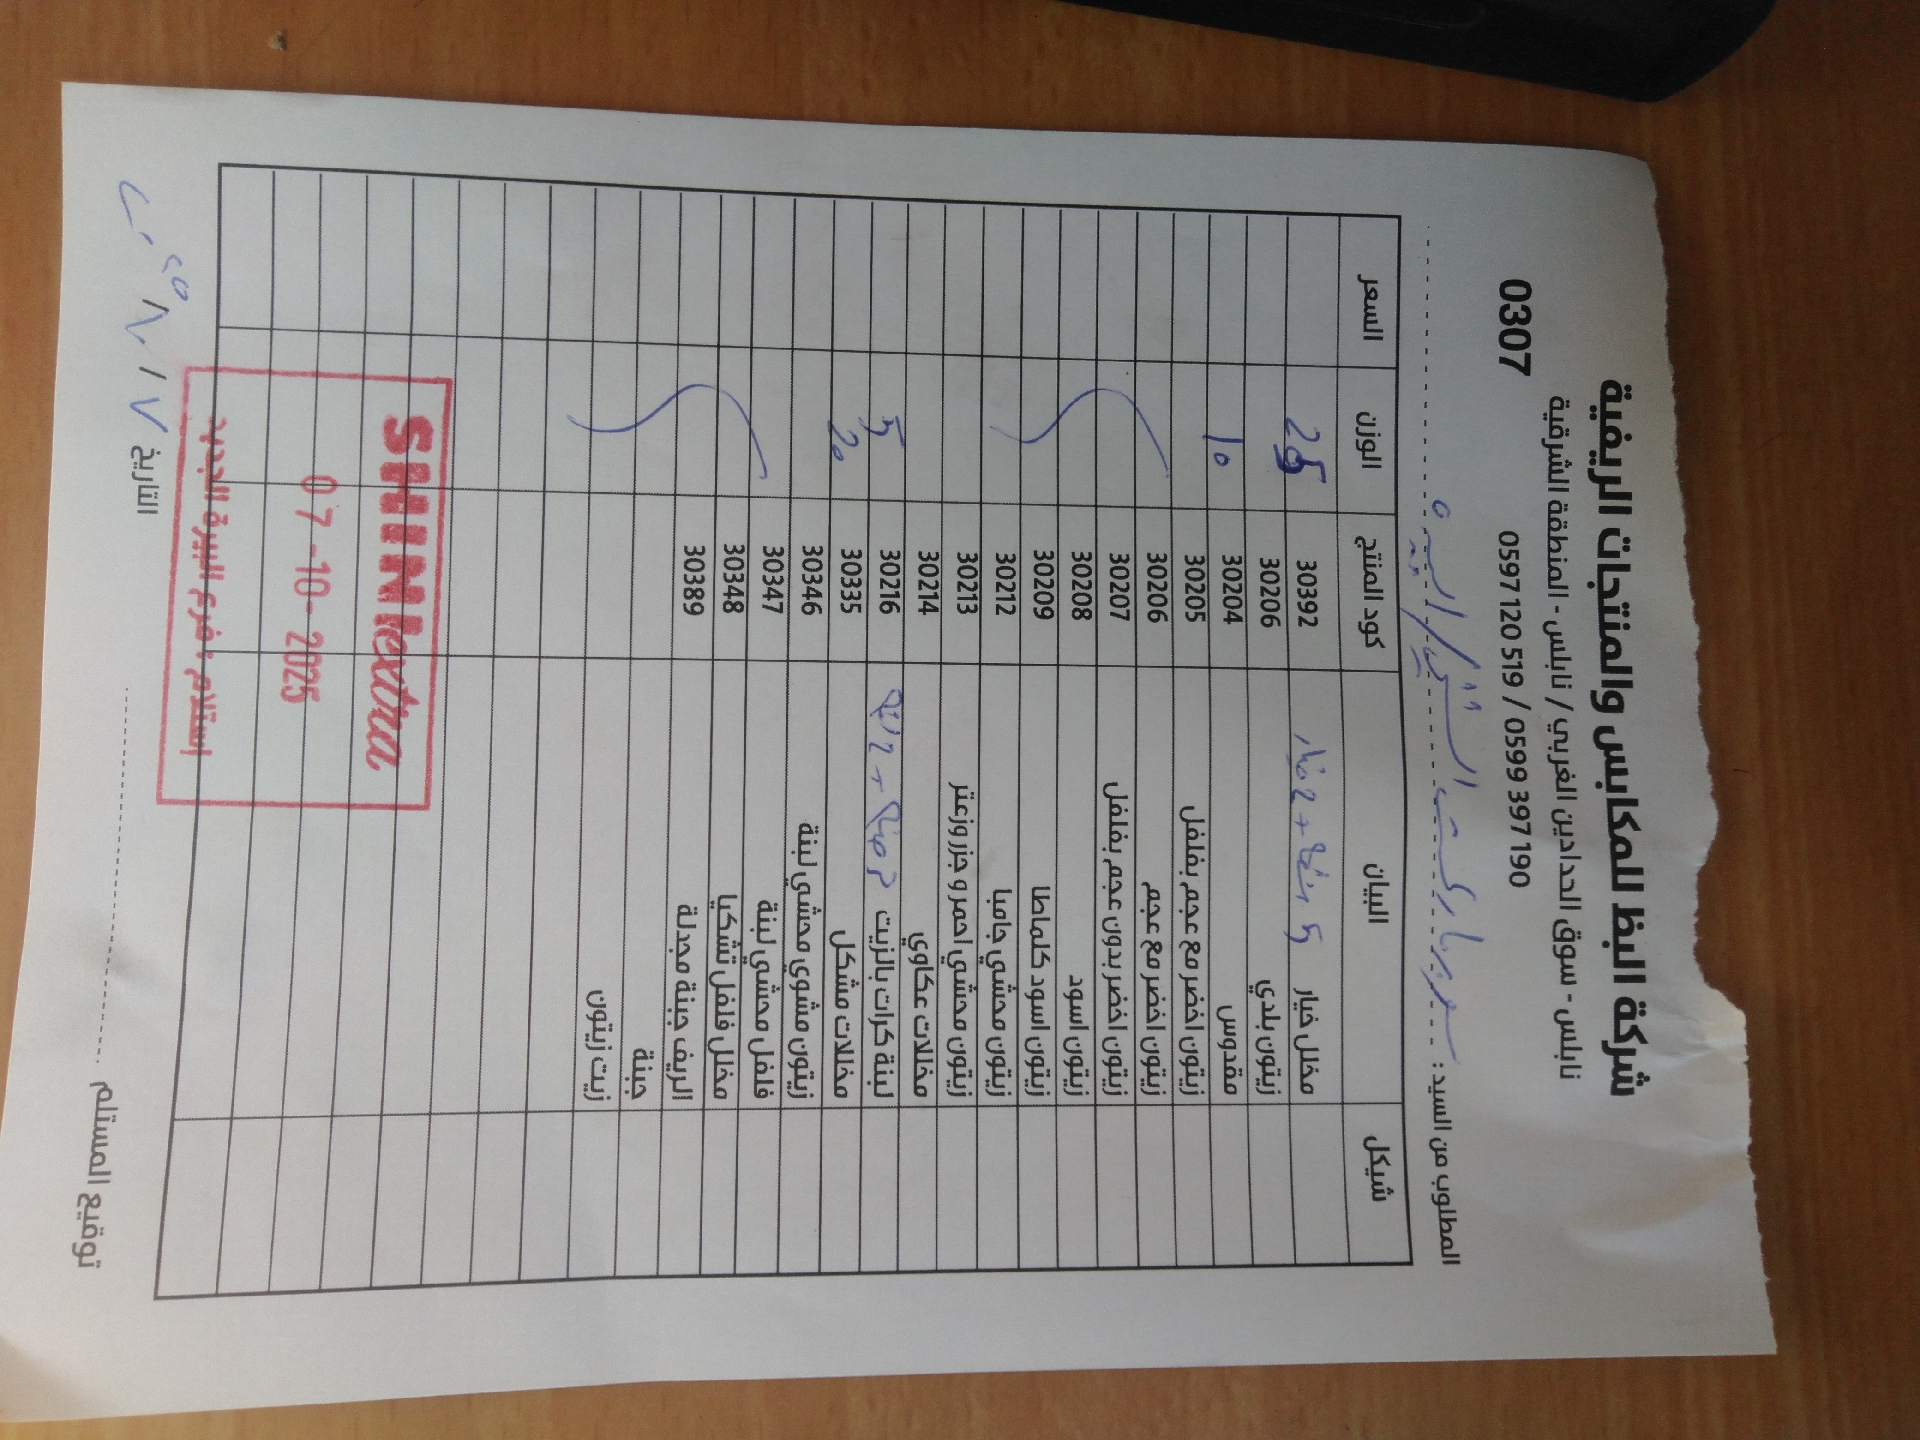 شركة البظ للمكابس والمنتجات الريفية
نابلس - سوق الحدادين الغربي / نابلس - المنطقة الشرقية
0597 120 519 / 0599 397 190
0307
المطلوب من السيد :
شيكل البيان كود المنتج الوزن السعر
مخلل خيار 30392 25
زيتون بلدي 30206
مقدوس 30204 10
زيتون اخضر مع عجم بفلفل 30205
زيتون اخضر مع عجم 30206
زيتون اخضر بدون عجم بفلفل 30207
زيتون اسود 30208
زيتون اسود كلماطا 30209
زيتون محشي جامبا 30212
زيتون محشي احمر و جزر وزعتر 30213
مخللات عكاوي 30214
لبنة كرات بالزيت 30216 5
مخللات مشكل 30335 20
زيتون مشوي محشي لبنة 30346
فلفل محشي لبنة 30347
مخلل فلفل تشكيا 30348
الريف جبنة مجدلة 30389
جبنة
زيت زيتون
SHINI extra
07-10-2025
إستلام : فرع البيرة الجديد
توقيع المستلم
التاريخ ٧ / ١٠ / ٢٠٢٥